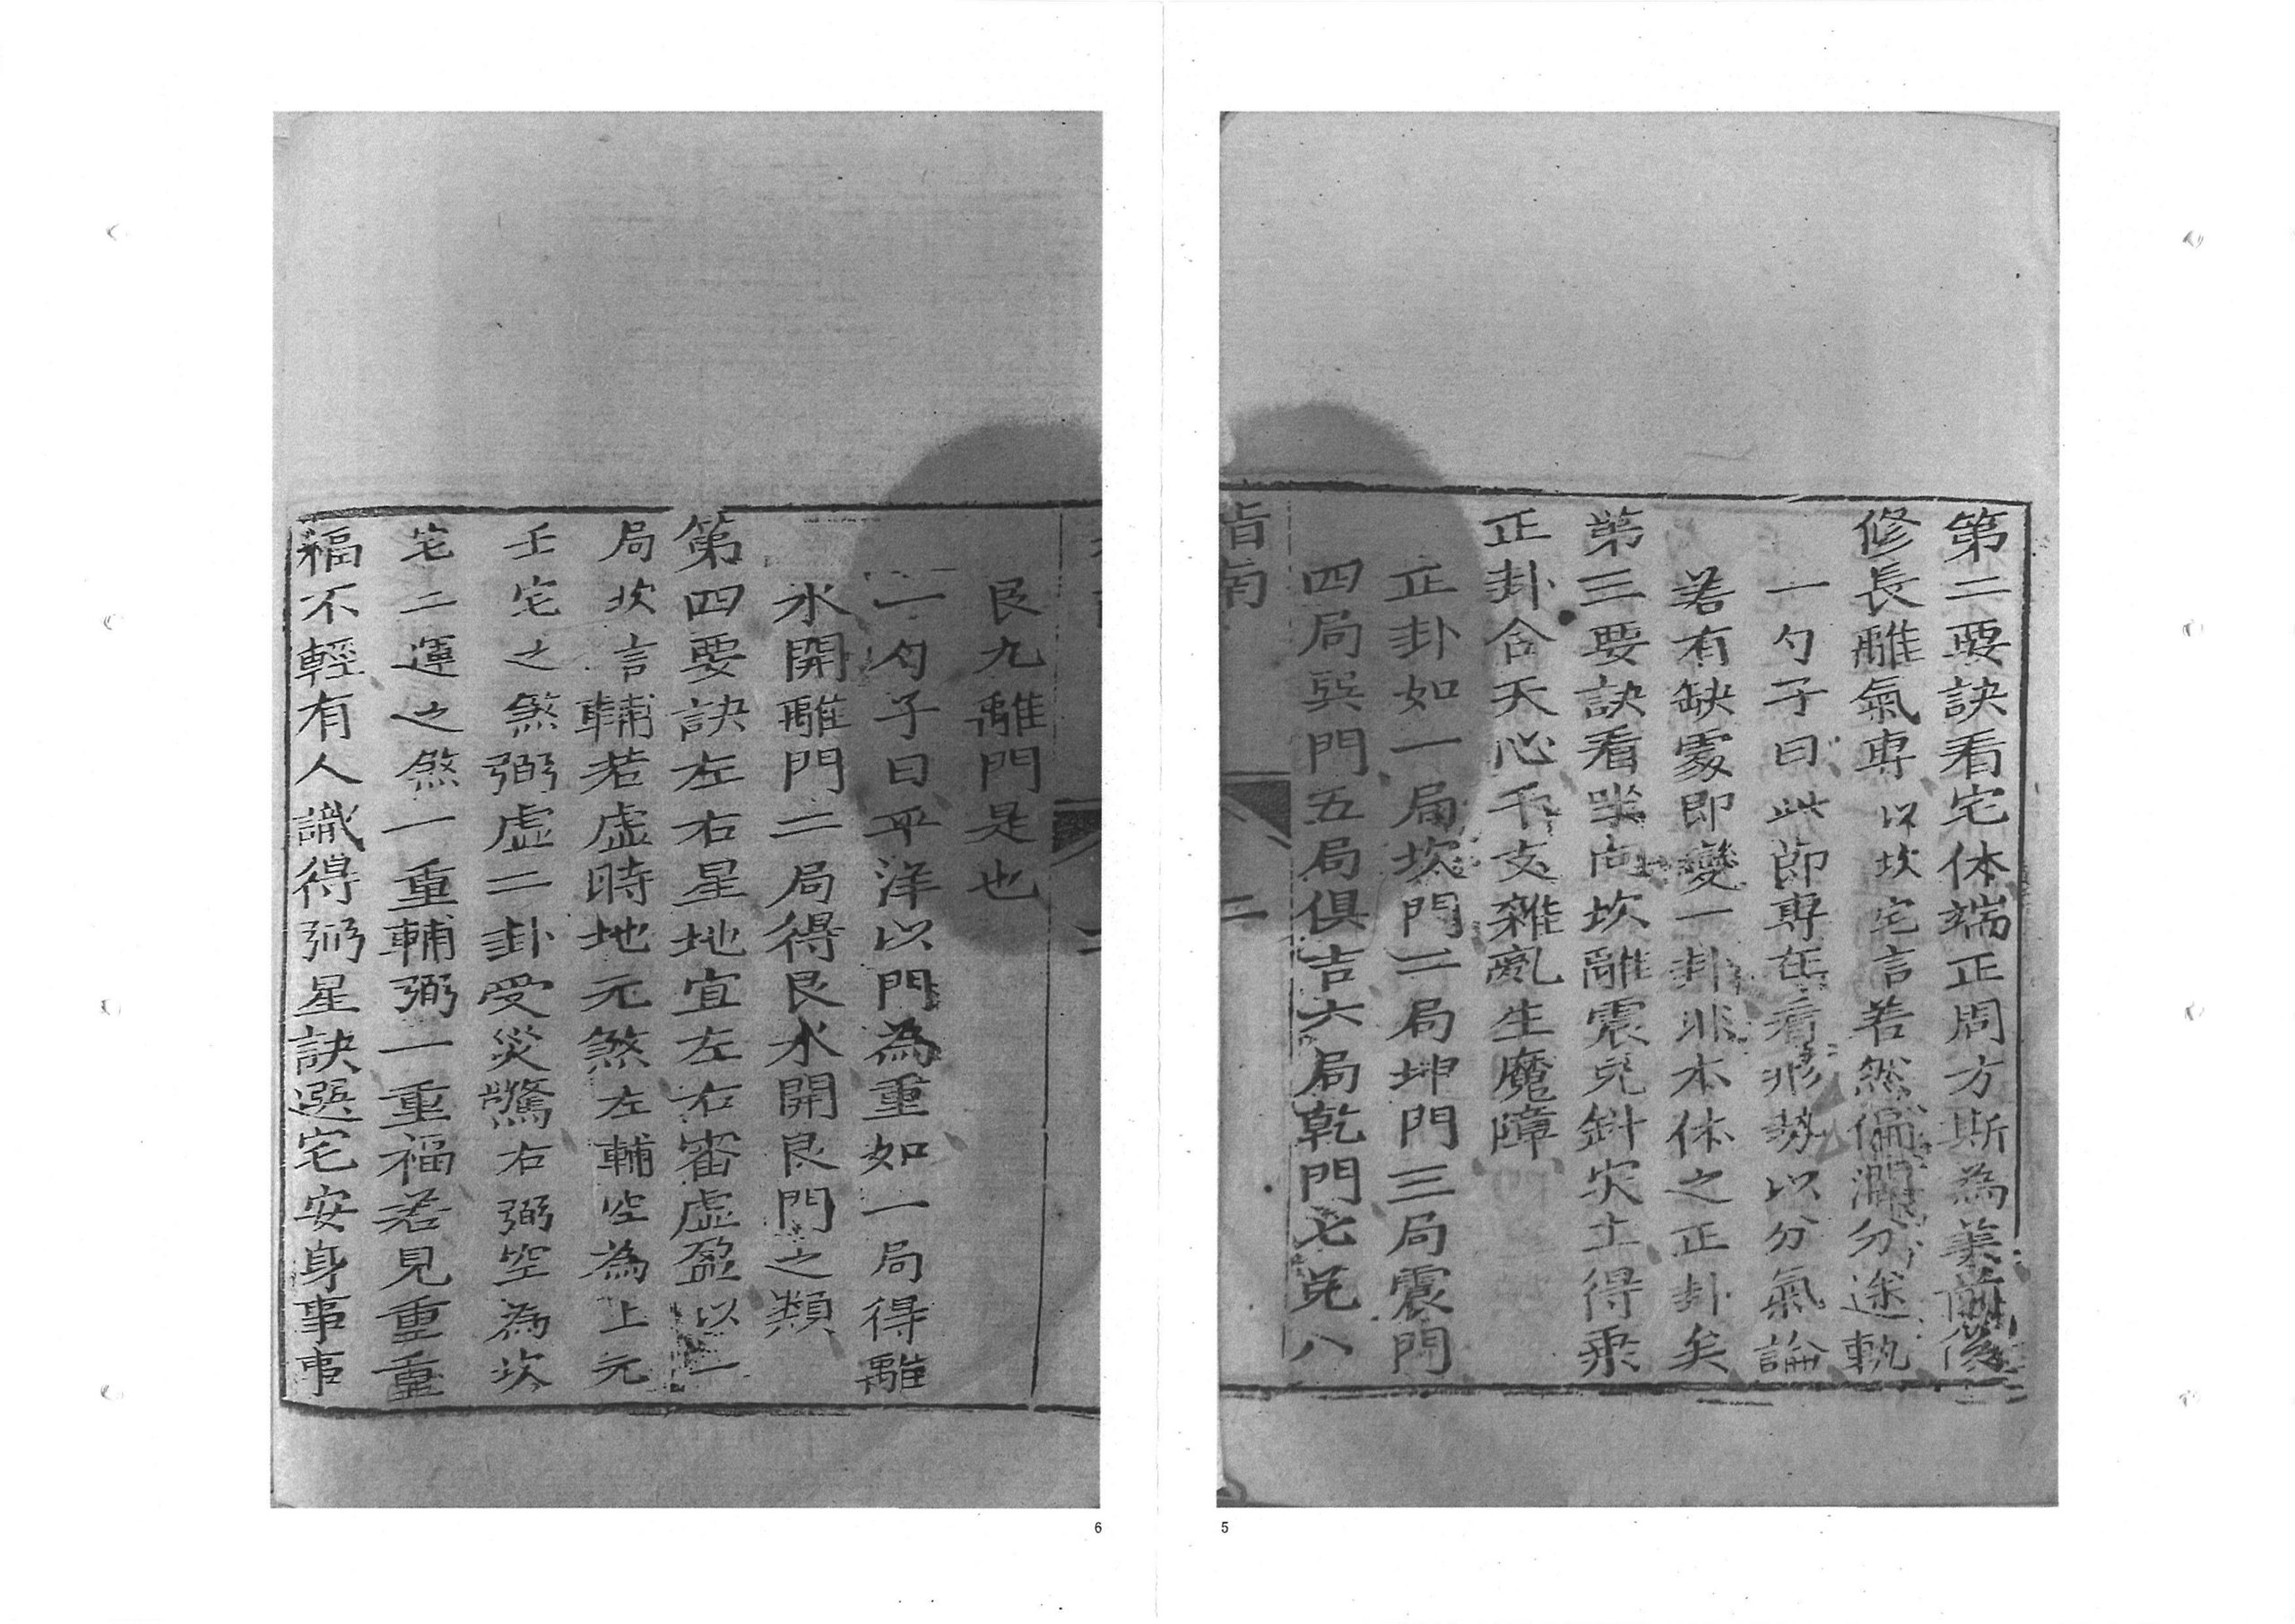 第二要訣看宅体端正周方斯為美前後
修長離氣專以坎宅言若然偏濶分途執
一勺子曰此節專在看形势以分氣論
若有缺處即變一卦非本体之正卦矣
第三要訣看坐向坎離震兑針尖上得乘
正卦合天心干支雜亂生魔障
正卦如一局坎門二局坤門三局震門
四局巽門五局俱吉六局乾門七兑八
指南
二
艮九離門是也
一勺子曰平洋以門為重如一局得離
水開離門二局得艮水開艮門之類
第四要訣左右星地宜左右審虛盈以一
局坎言輔若虛時地元煞左輔空為上元
壬宅之煞弼虛二卦受災驚右弼空為坎
宅二運之煞一重輔弼一重福若見重重
福不輕有人識得弼星訣選宅安身事事
5
6